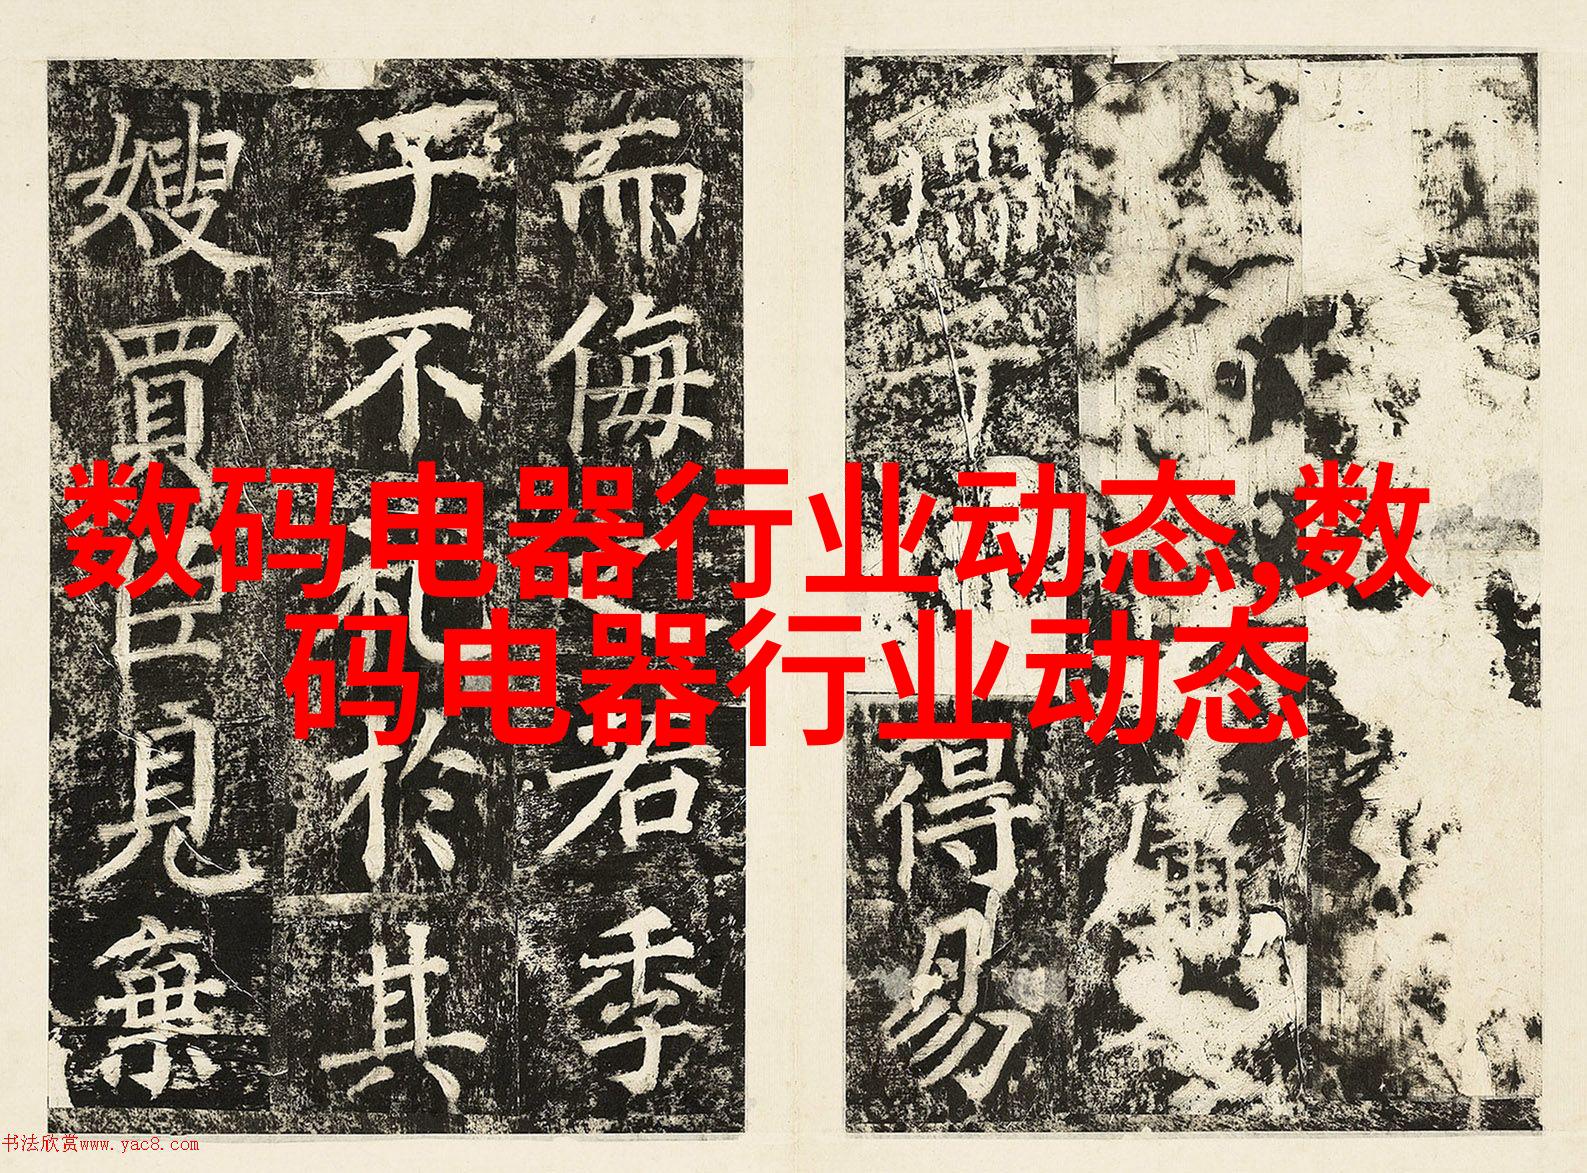 数码电器行业动态,数
码电器行业动态
得易
而侮之若季
子不礼於其
嫂買臣見棄
书法欣赏www.yac8.com